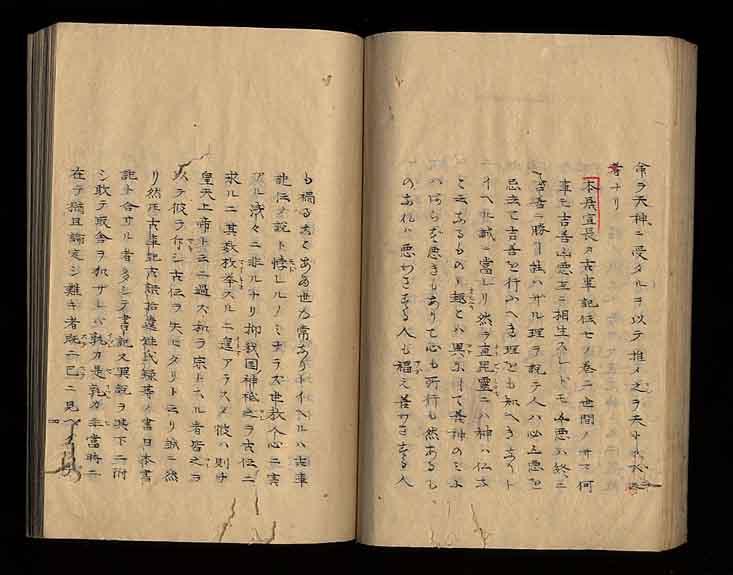 命ヲ天神ニ受タルヲ以テ推イ之ヲ天
者ナリ
本居宣長カ古事記伝七ノ巻ニ世間ノ何
事モ吉善凶悪互ニ相生スレトモ凶悪ハ終ニ
吉善ニ勝事能ハサル理ヲ説テ人ハ必凶悪を
忌去て吉善を行ふへき理とも知へきあり
イヘルハ誠ニ当レリ然ヲ直毘霊ニハ神ハ仏
と云あるものの趣とハ異にして善神のミ
ハあらす悪きもありて心も所行も然ある
のあれハ悪わさする人も福え善わさする人
も禍るあとある世の常ありトイヘルハ古事
記伝ノ説ト悖レルノミナラス世教人心ニ害
アル浅々ニ非ルナリ抑我国神祇之ヲ古伝ニ
求ルニ其数枚挙スルニ遑アラス彼ハ則チ
皇天上帝ト云ニ過ス和ヲ宗トスル者皆之ヲ
以テ彼ヲ作シ古伝ヲ失セタリト云リ誠ニ然
リ然レ古事記古語拾遺姓氏録等ノ書日本書
記ト合サル者多シテ書記又異説ヲ其下ニ附
シ敢テ取舎ヲ加サレハ孰カ是孰カ非当時ニ
在テ猶且論定シ難キ者既ニ已ニ見ヘ